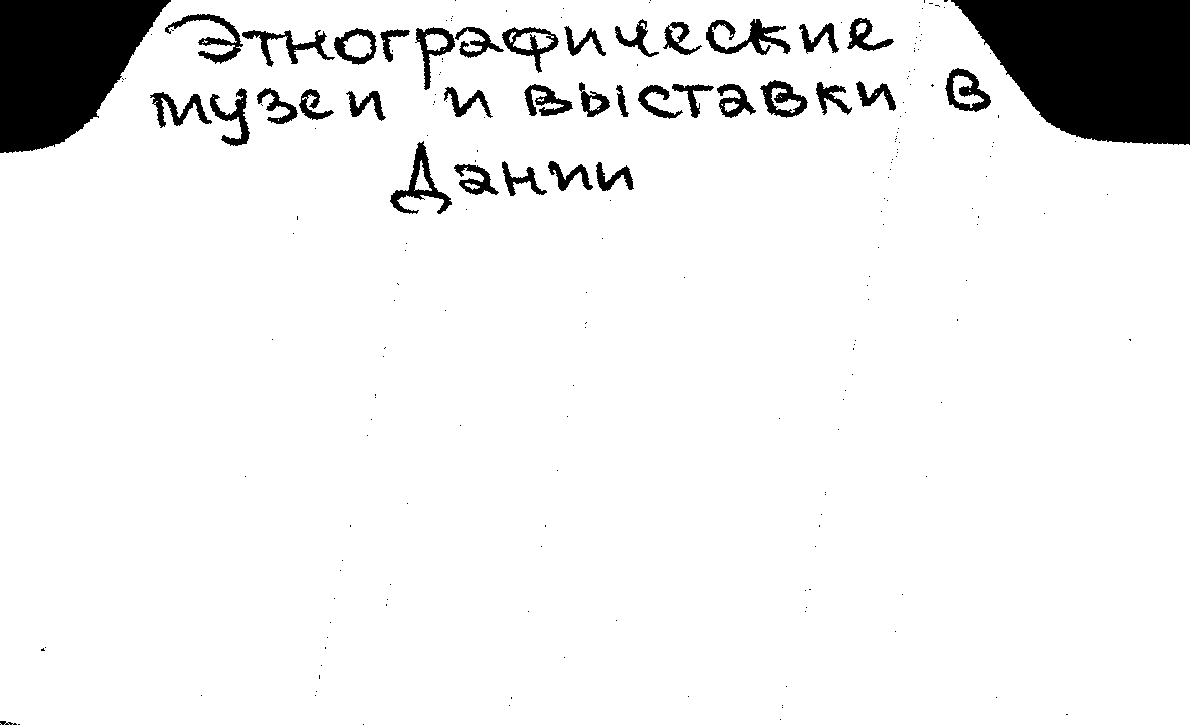 Этнографические
музеи и выставки в
Дании